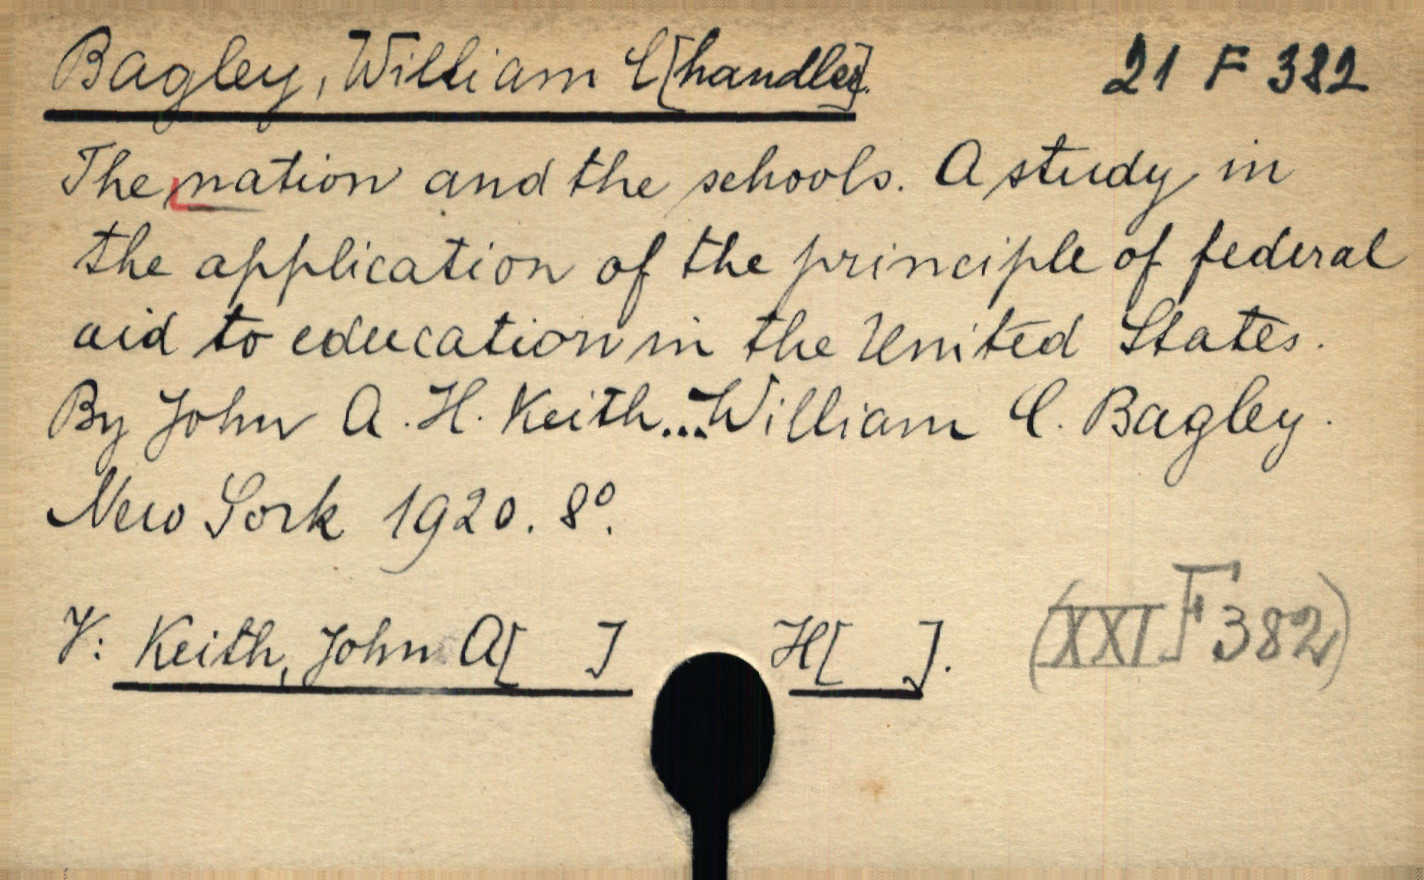 Bagley, William C[handler]. 21 F 382
The nation and the schools. A study in
the application of the principle of federal
aid to education in the United States.
By John A. H. Keith...William C. Bagley.
New York 1920. 8°.
V: Keith, John A[ ] H[ ]. (XXI F 382)